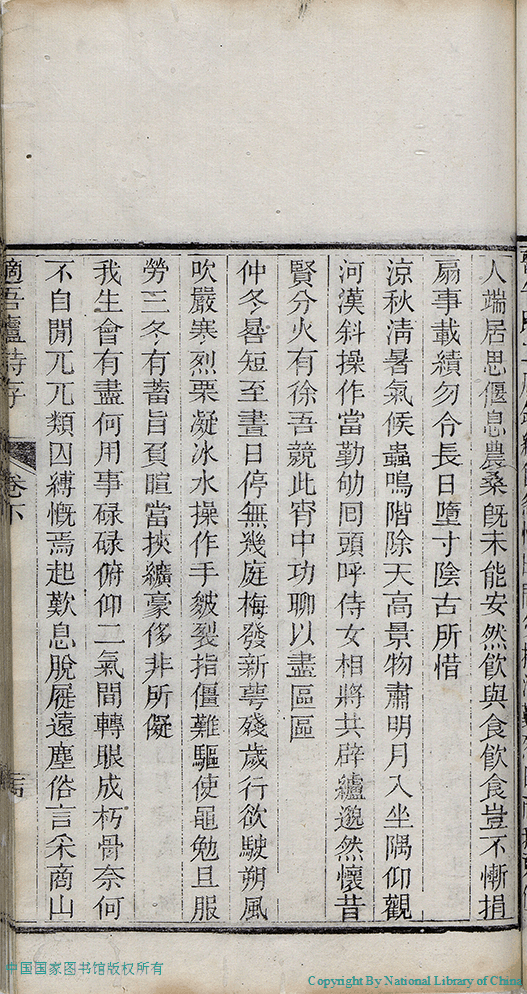 人端居思偃息農桑既未能安然飲與食飲食豈不慚捐
扇事載績勿令長日墮寸陰古所惜
涼秋淸暑氣候蟲鳴階除天高景物肅明月入坐隅仰觀
河漢斜操作當勤劬囘頭呼侍女相將共辟纑邈然懷昔
賢分火有徐吾競此宵中功聊以盡區區
仲冬晷短至晝日停無幾庭梅發新萼殘歲行欲駛朔風
吹嚴寒烈栗凝冰水操作手皴裂指僵難驅使黽勉且服
勞三冬有蓄旨負暄當挾纊豪侈非所儗
我生會有盡何用事碌碌俯仰二氣間轉眼成朽骨奈何
不自閒兀兀類囚縛慨焉起歎息脫屣遠塵俗言采商山
適吾廬詩存
卷下
中国国家图书馆版权所有
Copyright By National Library of China